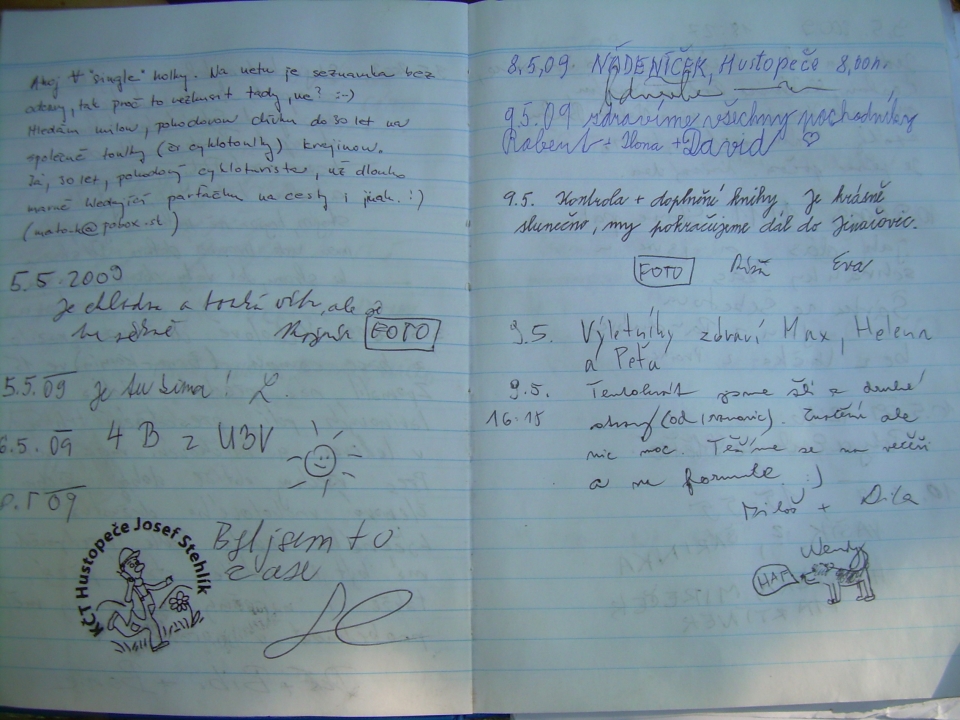 Ahoj "single" holky. Na netu je seznamka bez
tak proč to nezkusit tady, ne? :-)
Hledám milou, pohodovou dívku do 30 let na
společné toulky (či cyklotoulky) krajinou.
Já, 30 let, pohodový cykloturista, už dlouho
marně hledající parťačku na cesty i jinak. :)
5.5.2009
je chladno a ale je
FOTO
5.5.09 je tu zima! L.
6.5.09 4 B z UBV
09
KČT Hustopeče Josef Stehlík
Byl jsem tu
zase
8,5,09. NÁDENÍČEK, Hustopeče 8,00h.
9.5.09 zdravíme všechny pochodníky
Robert + Ilona + David ♡
9.5. Kontrola + doplnění knihy. Je krásně
slunečno, my pokračujeme dál do
FOTO Eva
9.5. Výletníky zdraví Max, Helena
a Peťa
9.5. Tentokrát jsme šli z druhé
16.15 strany (od ale
nic moc. Těšíme se na večeři
a na formule :)
Miloš +
Wendy
HAF